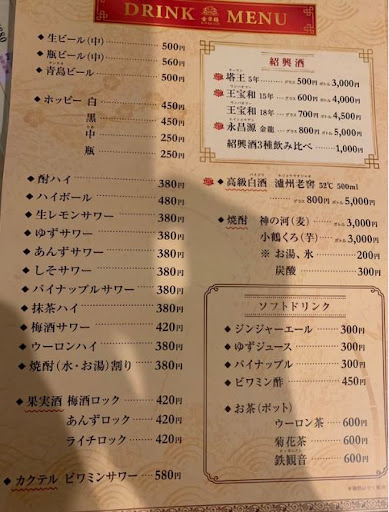 DRINK MENU
生ビール(中) 500円
瓶ビール(中) 560円
青島ビール 500円
ホッピー 白 450円
黒 450円
中 250円
瓶 250円
酎ハイ 380円
ハイボール 480円
生レモンサワー 380円
ゆずサワー 380円
あんずサワー 380円
しそサワー 380円
パイナップルサワー 380円
抹茶ハイ 380円
梅酒サワー 420円
ウーロンハイ 380円
焼酎(水・お湯)割り 380円
果実酒 梅酒ロック 420円
あんずロック 420円
ライチロック 420円
カクテル ビワミンサワー 580円
紹興酒
塔王 5年 グラス 500円 ボトル 3,000円
王宝和 15年 グラス 600円 ボトル 4,000円
王宝和 18年 グラス 700円 ボトル 4,500円
永昌源 金龍 グラス 800円 ボトル 5,000円
紹興酒3種飲み比べ 1,000円
高級白酒 瀘州老窖 52℃ 500ml
グラス 800円 ボトル 5,000円
焼酎 神の河(麦) ボトル 3,000円
小鶴くろ(芋) ボトル 3,000円
※ お湯、氷 200円
炭酸 300円
ソフトドリンク
ジンジャーエール 300円
ゆずジュース 300円
パイナップル 300円
ビワミン酢 450円
お茶(ポット)
ウーロン茶 600円
菊花茶 600円
鉄観音 600円